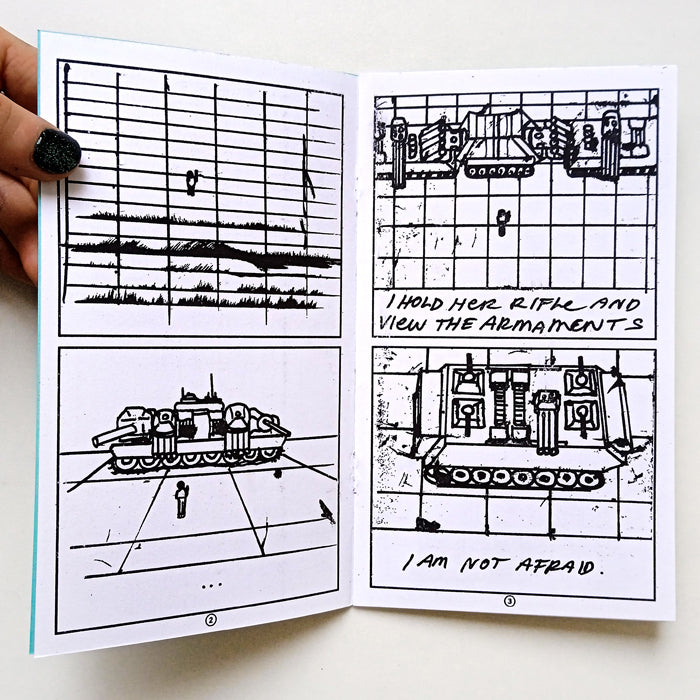 ...
2
I HOLD HER RIFLE AND
VIEW THE ARMAMENTS
I AM NOT AFRAID.
3